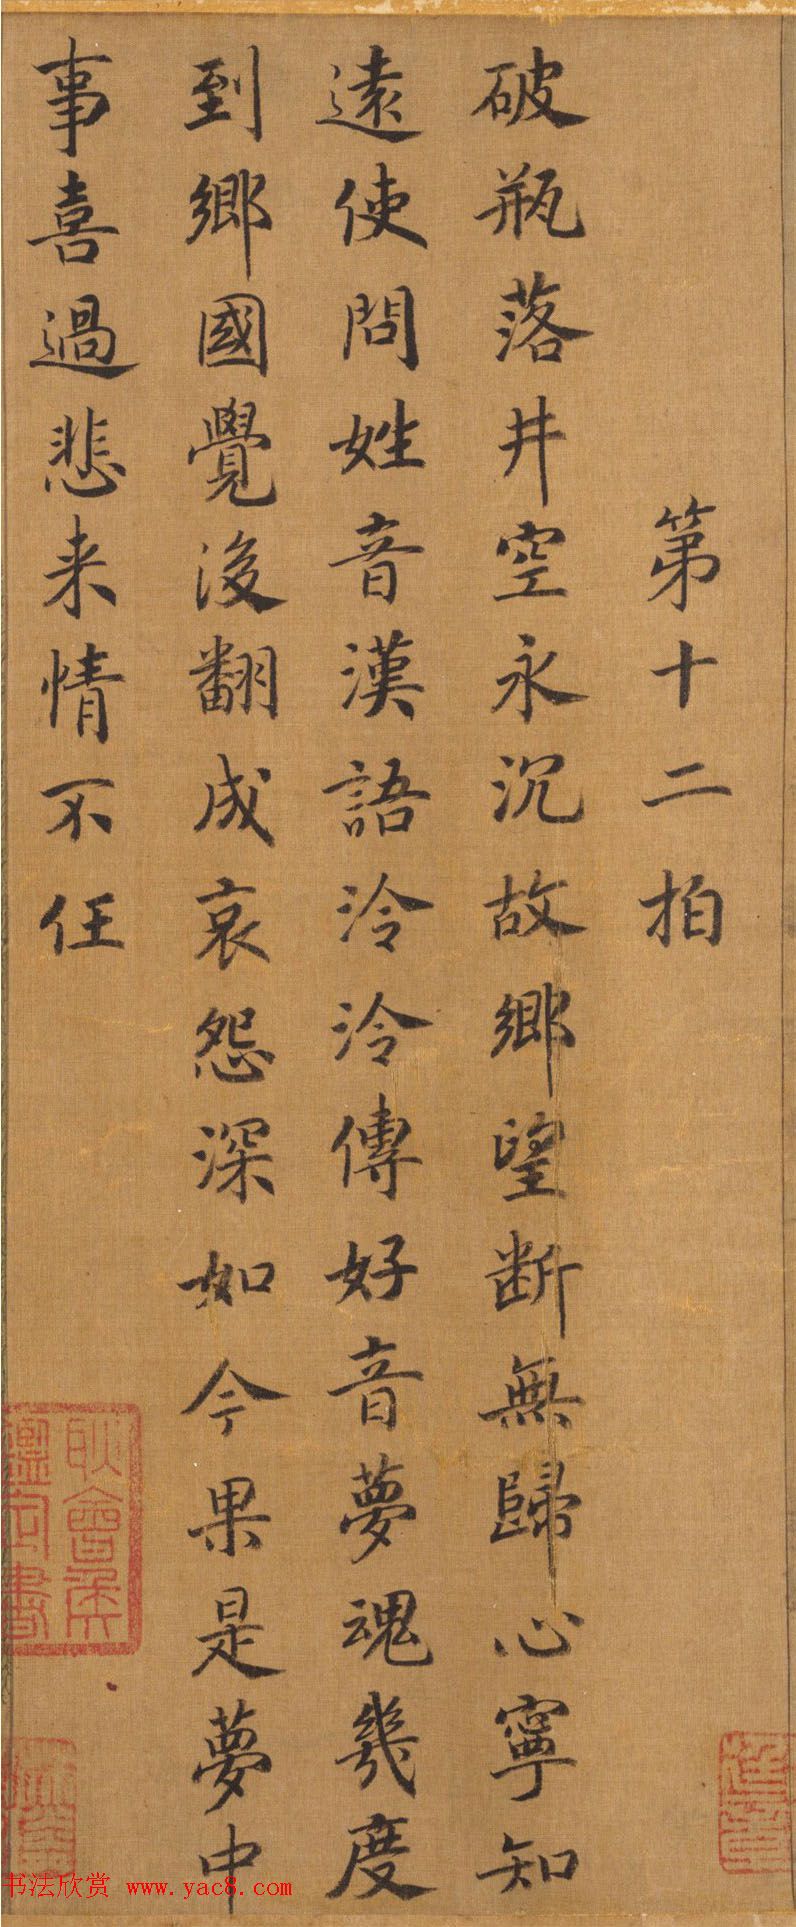 第十二拍
破瓶落井空永沉故鄉望断無歸心寧知
遠使問姓音漢語泠泠傳好音夢魂幾度
到鄉國覺後翻成哀怨深如今果是夢中
事喜過悲来情不任
書法欣赏 www.yac8.com